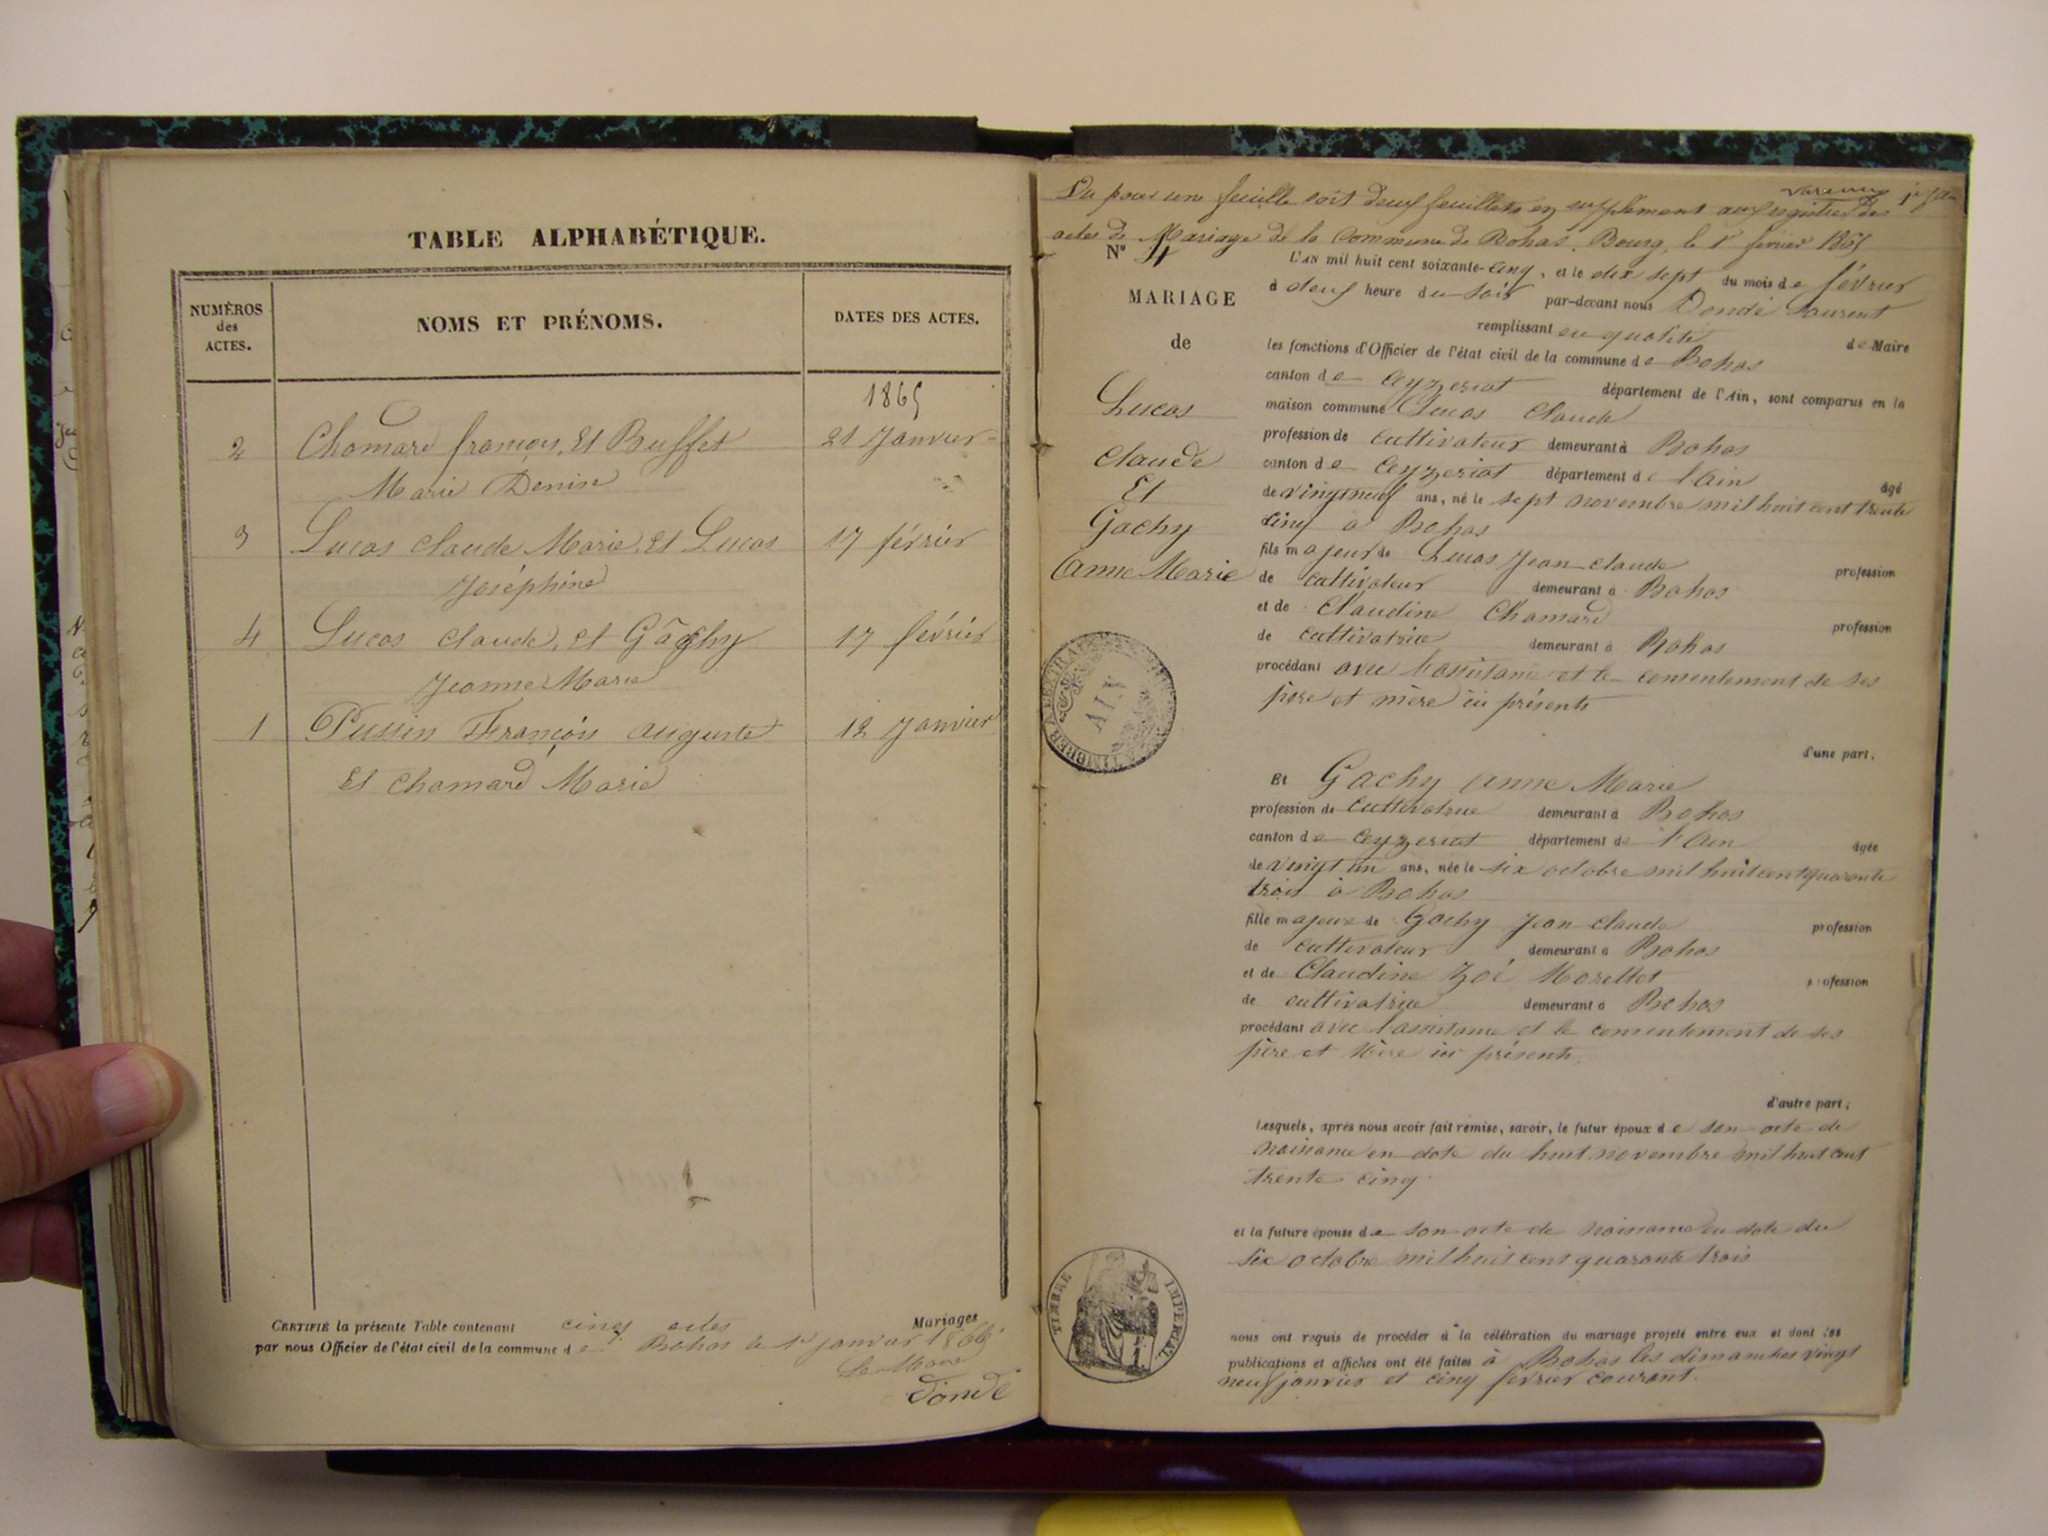 TABLE ALPHABÉTIQUE.
NUMÉROS des ACTES.
NOMS ET PRÉNOMS.
DATES DES ACTES.
1865
2 Chamard françois, Et Buffet 21 Janvier
Marie Denise
3 Lucas Claude Marie, Et Lucas 17 février
Joséphine
4 Lucas Claude, et Gâchy 17 février
Jeanne Marie
1 Pussin François Auguste 12 Janvier
Et Chamard Marie
CERTIFIÉ la présente Table contenant cinq actes Mariages
par nous Officier de l'état civil de la commune de Bohas le 1er janvier 1866
Le Maire
Dondé
Vu pour une feuille soit deux feuillets en supplément aux registres des
actes de Mariage de la Commune de Bohas. Bourg, le 1er février 1865
N° 4
MARIAGE
de
Lucas
Claude
Et
Gachy
Anne Marie
L'AN mil huit cent soixante-cinq, et le dix sept du mois de février
à deux heure du soir par-devant nous Dondé Laurent
remplissant en qualité de Maire
les fonctions d'Officier de l'état civil de la commune de Bohas
canton de Ceyzeriat département de l'Ain, sont comparus en la
maison commune Lucas Claude
profession de cultivateur demeurant à Bohas
canton de Ceyzeriat département de l'ain âgé
de vingt neuf ans, né le sept novembre mil huit cent trente
cinq à Bohas
fils majeur de Lucas Jean Claude profession
de cultivateur demeurant à Bohas
et de Claudine Chamard profession
de cultivatrice demeurant à Bohas
procédant avec l'assistance et le consentement de ses
père et mère ici présents
d'une part.
Et Gachy Anne Marie
profession de cultivatrice demeurant à Bohas
canton de Ceyzeriat département de l'Ain âgée
de vingt un ans, née le six octobre mil huit cent quarante
trois à Bohas
fille majeure de Gachy Jean Claude profession
de cultivateur demeurant à Bohas
et de Claudine Zoé Morellet profession
de cultivatrice demeurant à Bohas
procédant avec l'assistance et le consentement de ses
père et Mère ici présents.
d'autre part;
Lesquels, après nous avoir fait remise, savoir, le futur époux de son acte de
naissance en date du huit novembre mil huit cent
trente cinq
et la future épouse de son acte de naissance en date du
six octobre mil huit cent quarante trois
nous ont requis de procéder à la célébration du mariage projeté entre eux et dont les
publications et affiches ont été faites à Bohas les dimanches vingt
neuf janvier et cinq février courant.
AIN
TIMBRE IMPERIAL